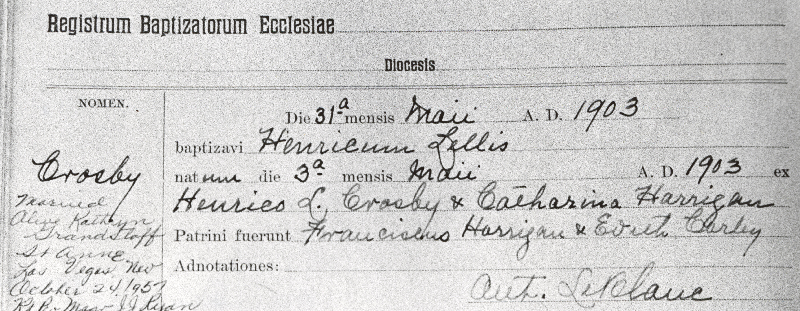 Registrum Baptizatorum Ecclesiae
Diocesis
NOMEN.
Die 31ª mensis Maii A. D. 1903
baptizavi Henricum Lillis
Crosby
natum die 3ª mensis Maii A. D. 1903 ex
Henrico L. Crosby & Catharina Harrigan
Patrini fuerunt Franciscus Harrigan & Edith Carley
Adnotationes:
Married
Olive Kathryn
Grandstaff
St Anne
Las Vegas Nev
October 24 1957
Rt Rev Msgr J J Ryan
Ant. LeBlanc